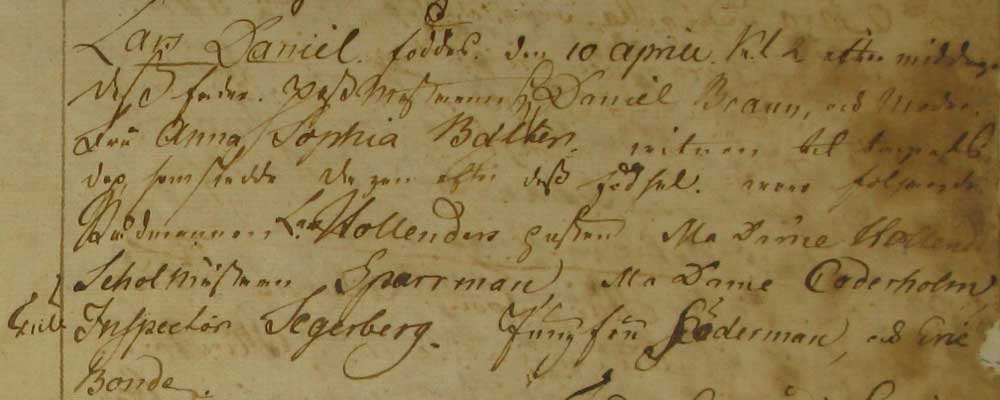 Lars Daniel. föddes. den 10 april Kl 2 efter middag
deß fader. Daniel Braun, och Moder
Fru Anna Sophia Balther. witnen til
dop, som skedde dagen efter deß födsel. woro följande
Rådmannen Lars Hollenders hustru MaDame Hollend
Scholmästaren Sparrman, MaDame Coderholm,
Inspector Segerberg. Jungfru Söderman, och Eric
Bonde.